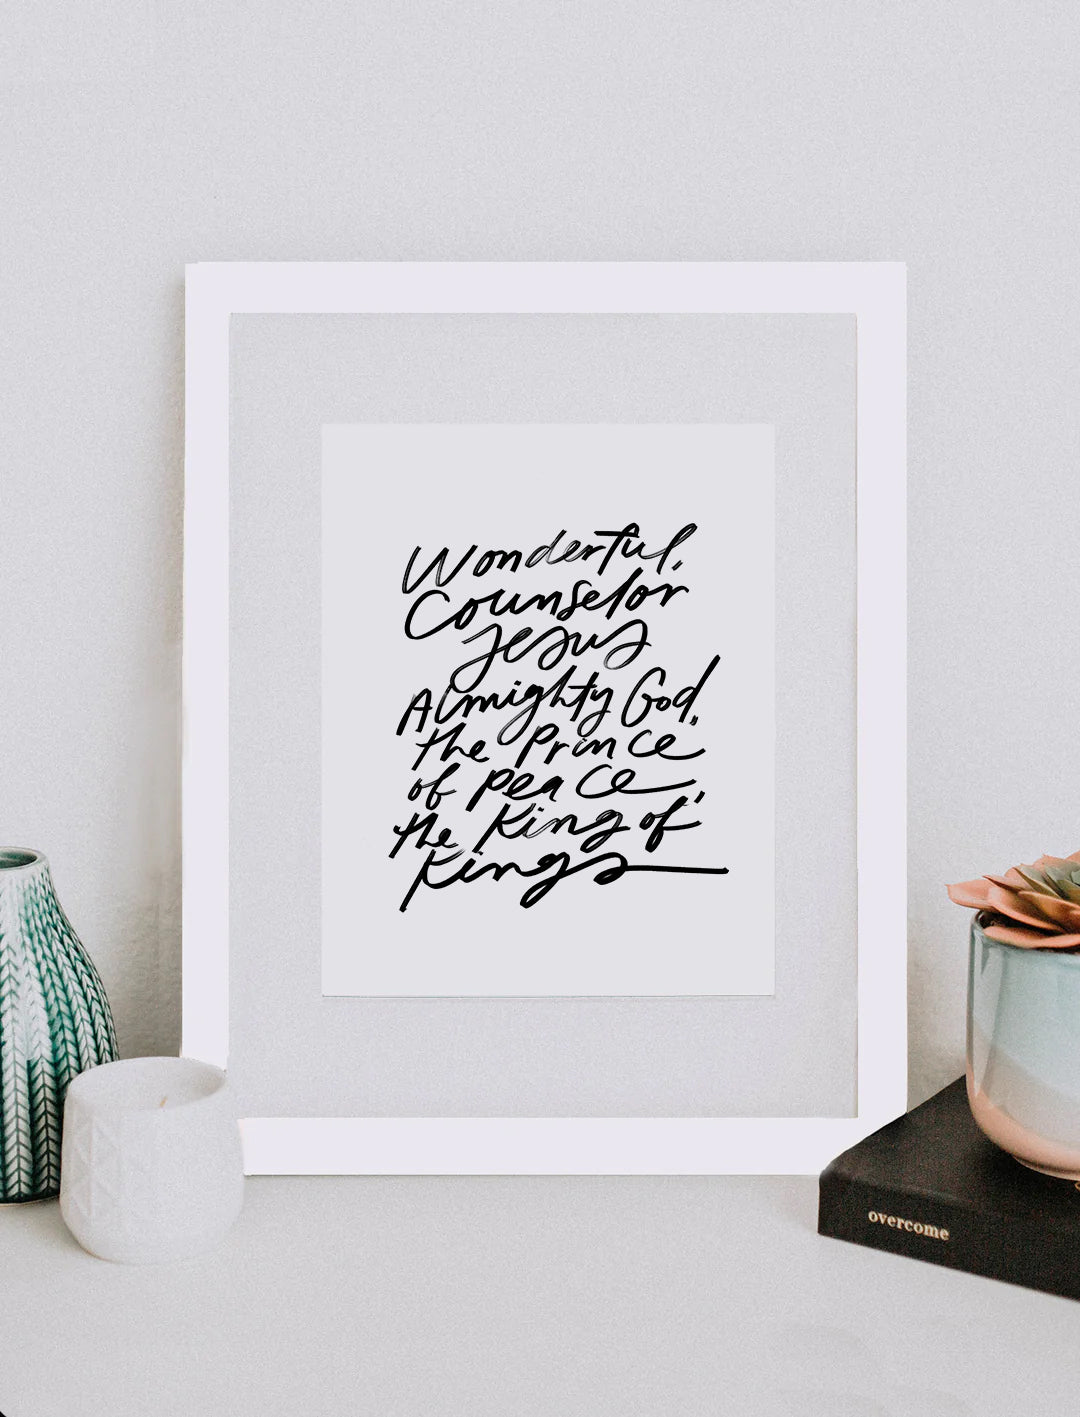 Wonderful,
Counselor
Jesus
Almighty God,
the Prince
of peace,
the King of
Kings
overcome